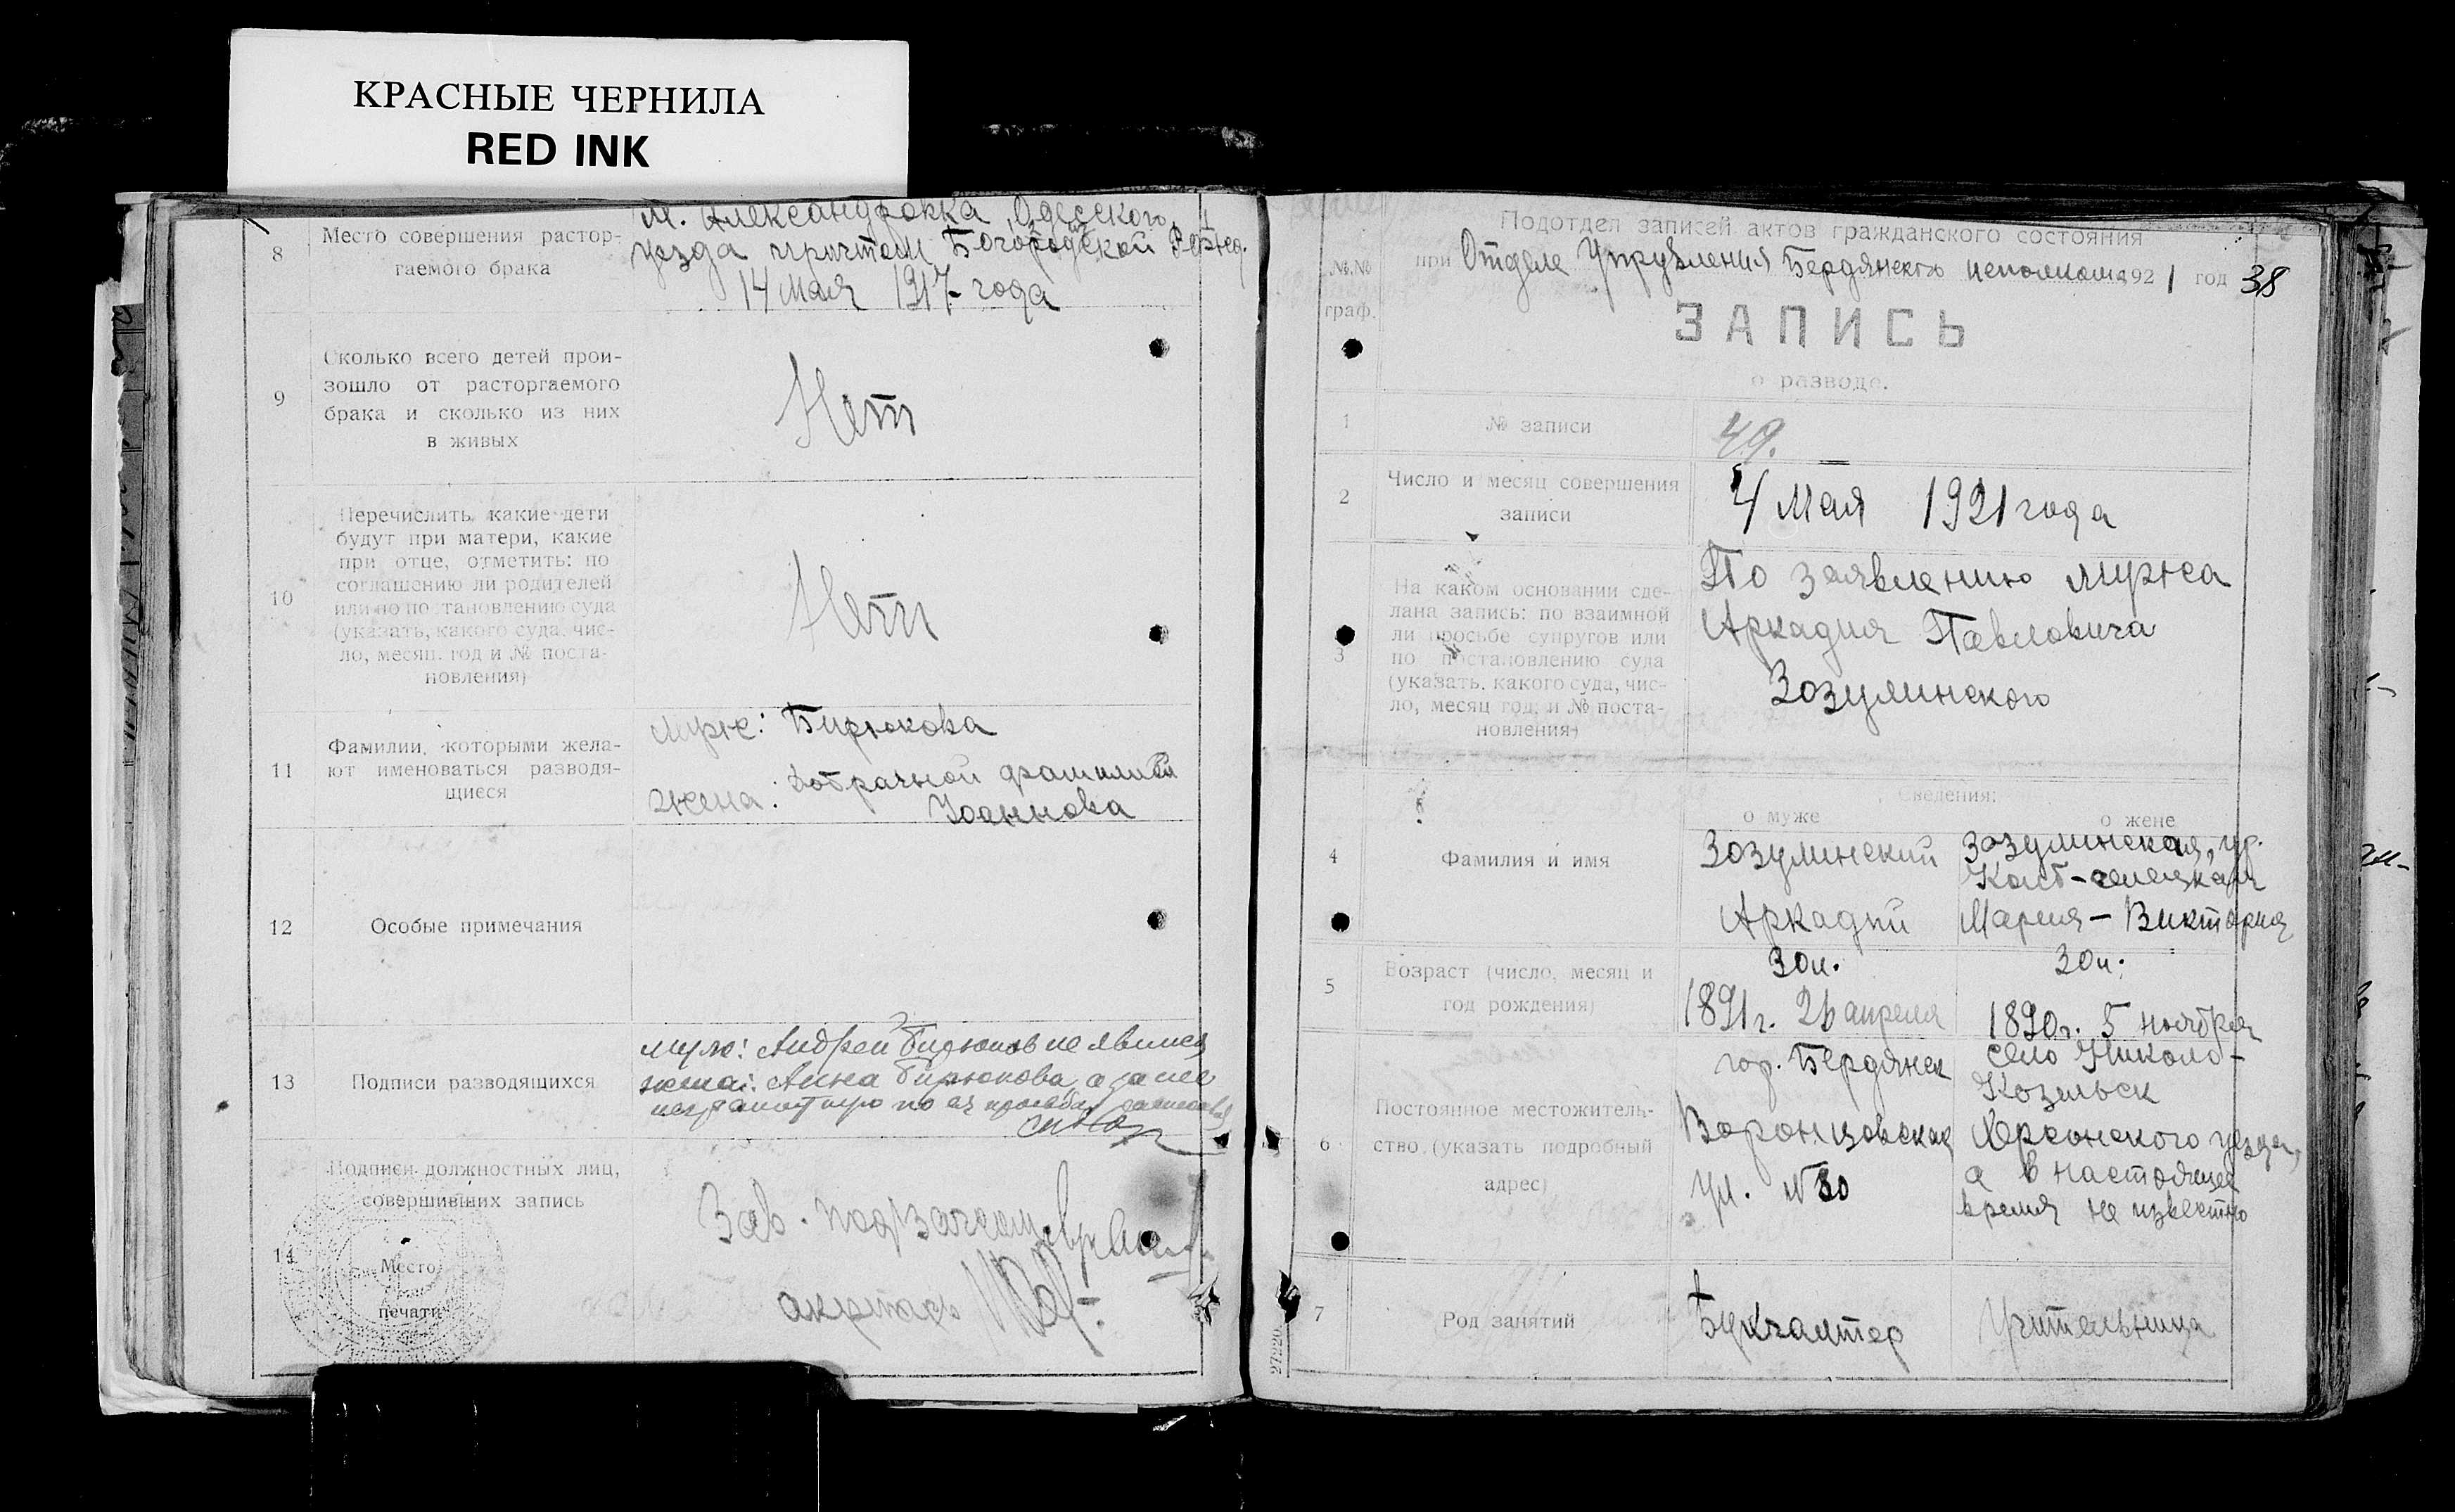 КРАСНЫЕ ЧЕРНИЛА
RED INK
8
Место совершения растор-
гаемого брака
М. Александровка, Одесского
уезда причтом Богородской
14 мая 1917 года
9
Сколько всего детей прои-
зошло от расторгаемого
брака и сколько из них
в живых
Нет
10
Перечислить, какие дети
будут при матери, какие
при отце, отметить: по
соглашению ли родителей
или по постановлению суда
(указать, какого суда, чис-
ло, месяц, год и № поста-
новления)
Нет
11
Фамилии, которыми жела-
ют именоваться разводя-
щиеся
муж: Бирюкова
жена: добрачной фамилией
Иоаннова
12
Особые примечания
13
Подписи разводящихся
муж: Андрей Бирюков не явился
жена: Анна Бирюкова, а за нее
неграмотную по ея просьбе
14
Подписи должностных лиц,
совершивших запись
Место
печати
Зав.
Подотдел записей актов гражданского состояния
№№
граф.
при Отделе Управления Бердянского исполкома 1921 год 38
ЗАПИСЬ
о разводе.
1
№ записи
49.
2
Число и месяц совершения
записи
4 Мая 1921 года
3
На каком основании сде-
лана запись: по взаимной
ли просьбе супругов или
по постановлению суда
(указать, какого суда, чис-
ло, месяц, год, и № поста-
новления)
По заявлению мужа
Аркадия Павловича
Зозулинского
Сведения:
о муже
о жене
4
Фамилия и имя
Зозулинский
Аркадий
Зозулинская, ур.
Мария-Виктория
5
Возраст (число, месяц и
год рождения)
30 л.
1891 г. 26 апреля
30 л.
1890 г. 5 ноября
6
Постоянное местожитель-
ство (указать подробный
адрес)
гор. Бердянск
Воронцовская
ул. № 80
село Николо-
Козельск
Херсонского уезда,
а в настоящее
время не известно
7
Род занятий
Бухгалтер
Учительница
27220